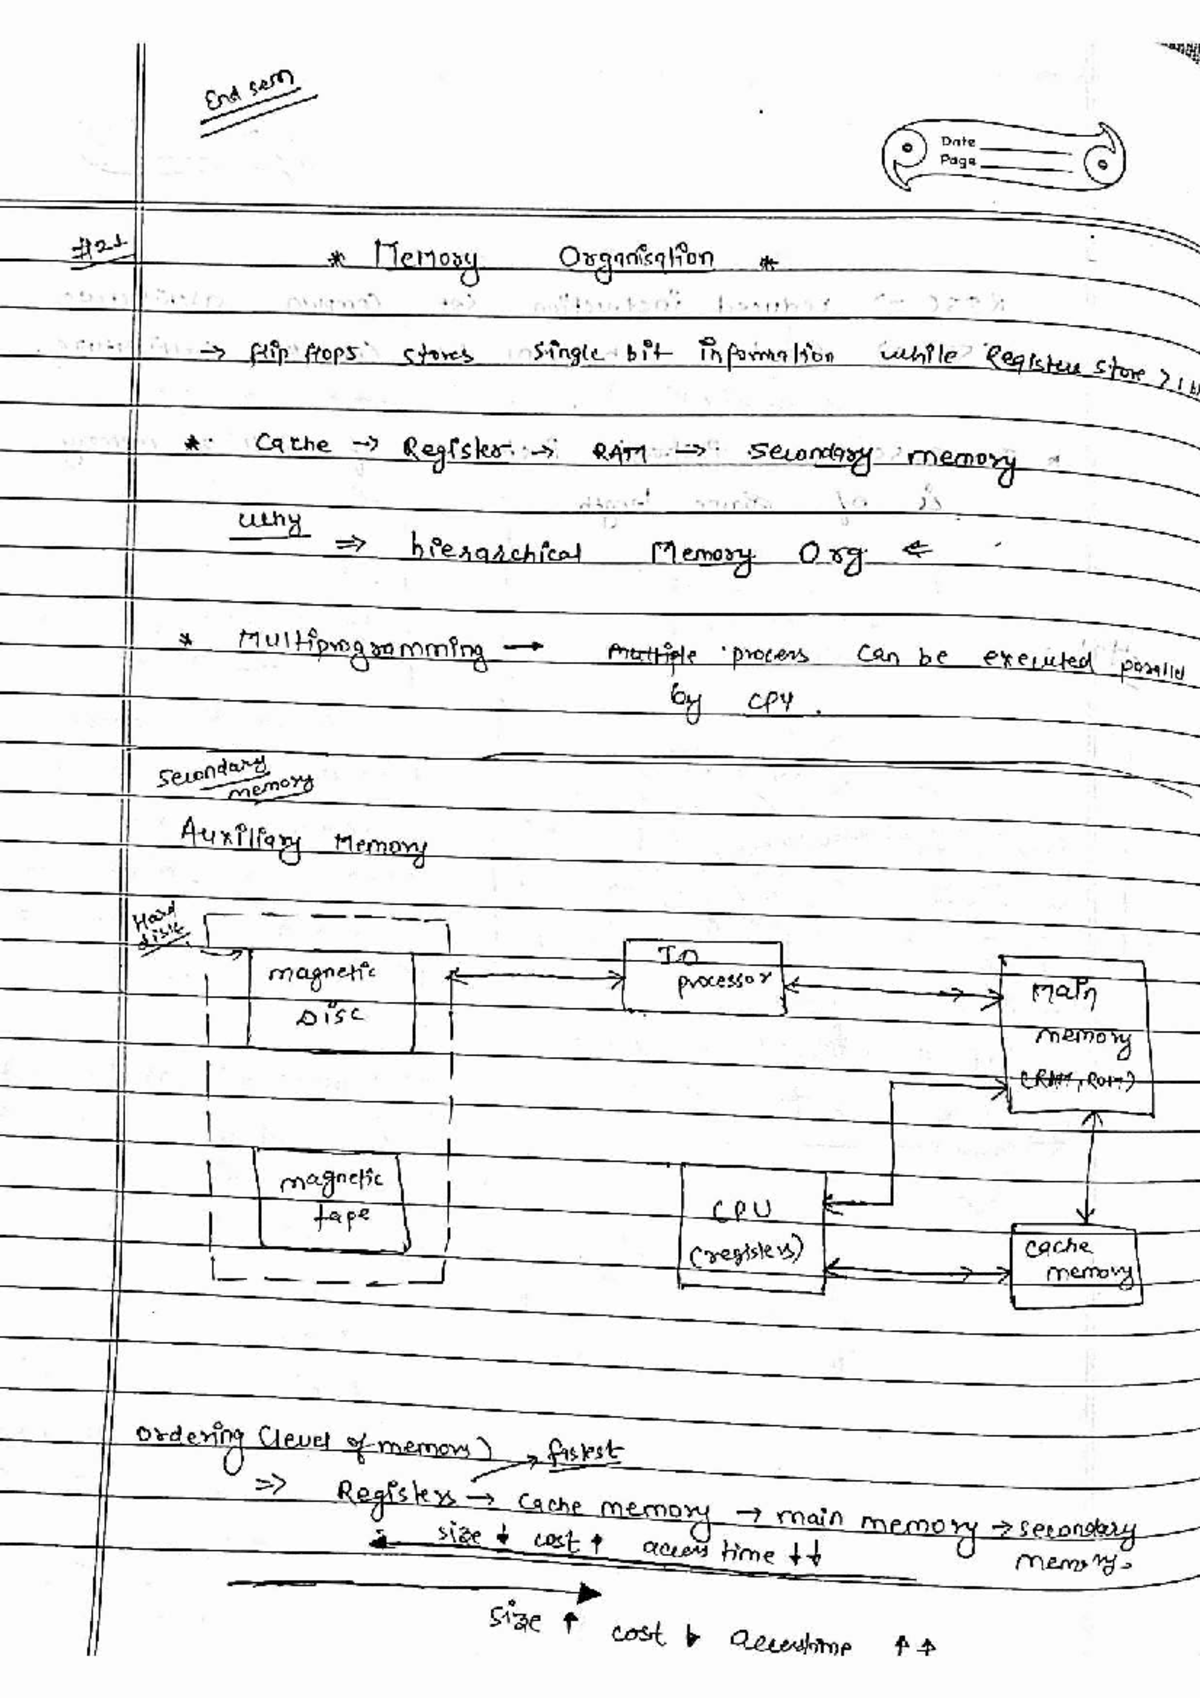 End sem
Date
Page
#21
* Memory Organisation *
→ flip flops stores single bit information while Registers store >1
* Cache → Register → RAM → Secondary memory
why ⇒ hierarchical Memory Org ⇐
* Multiprogramming → multiple process can be executed parallel
by CPU.
Secondary
memory
Auxiliary Memory
Hard
disk
magnetic
DISC
IO
processor
Main
memory
(RAM, ROM)
magnetic
tape
CPU
(registers)
cache
memory
ordering (level of memory)
fastest
⇒ Registers → cache memory → main memory → secondary
memory.
size ↓ cost ↑ access time ↓↓
size ↑ cost ↓ accesstime ↑↑